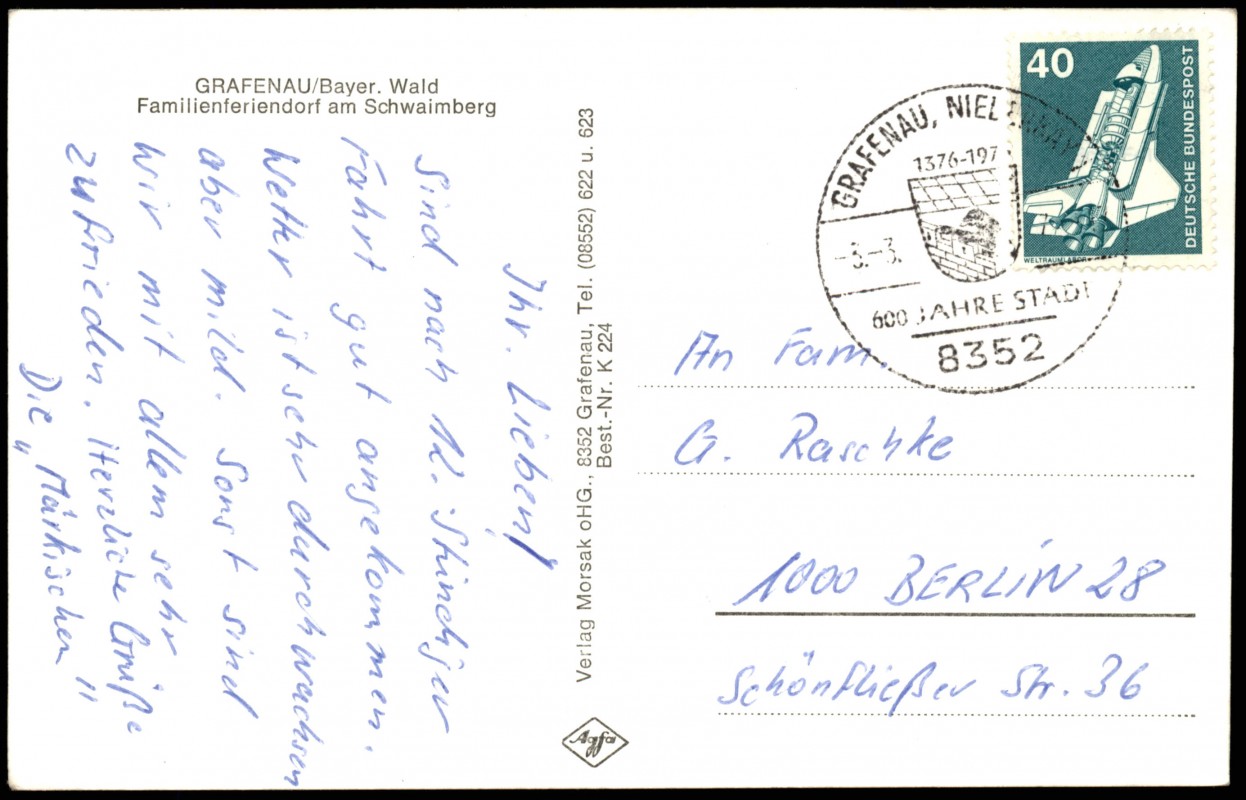 GRAFENAU/Bayer. Wald
Familienferiendorf am Schwaimberg
Ihr Lieben!
Sind nach 12. Stündiger
Fahrt gut angekommen.
Wetter ist sehr durchwachsen
aber mild. Sonst sind
wir mit allem sehr
zufrieden. Herzliche Grüße
Die "Märkischen"
Verlag Morsak oHG., 8352 Grafenau, Tel. (08552) 622 u. 623
Best.-Nr. K 224
Agfa
40
DEUTSCHE BUNDESPOST
WELTRAUMLABOR
GRAFENAU,
1376-197
-3.-3.
600 JAHRE STADT
8352
An Fam.
G. Raschke
1000 BERLIN 28
Schönfließer Str. 36